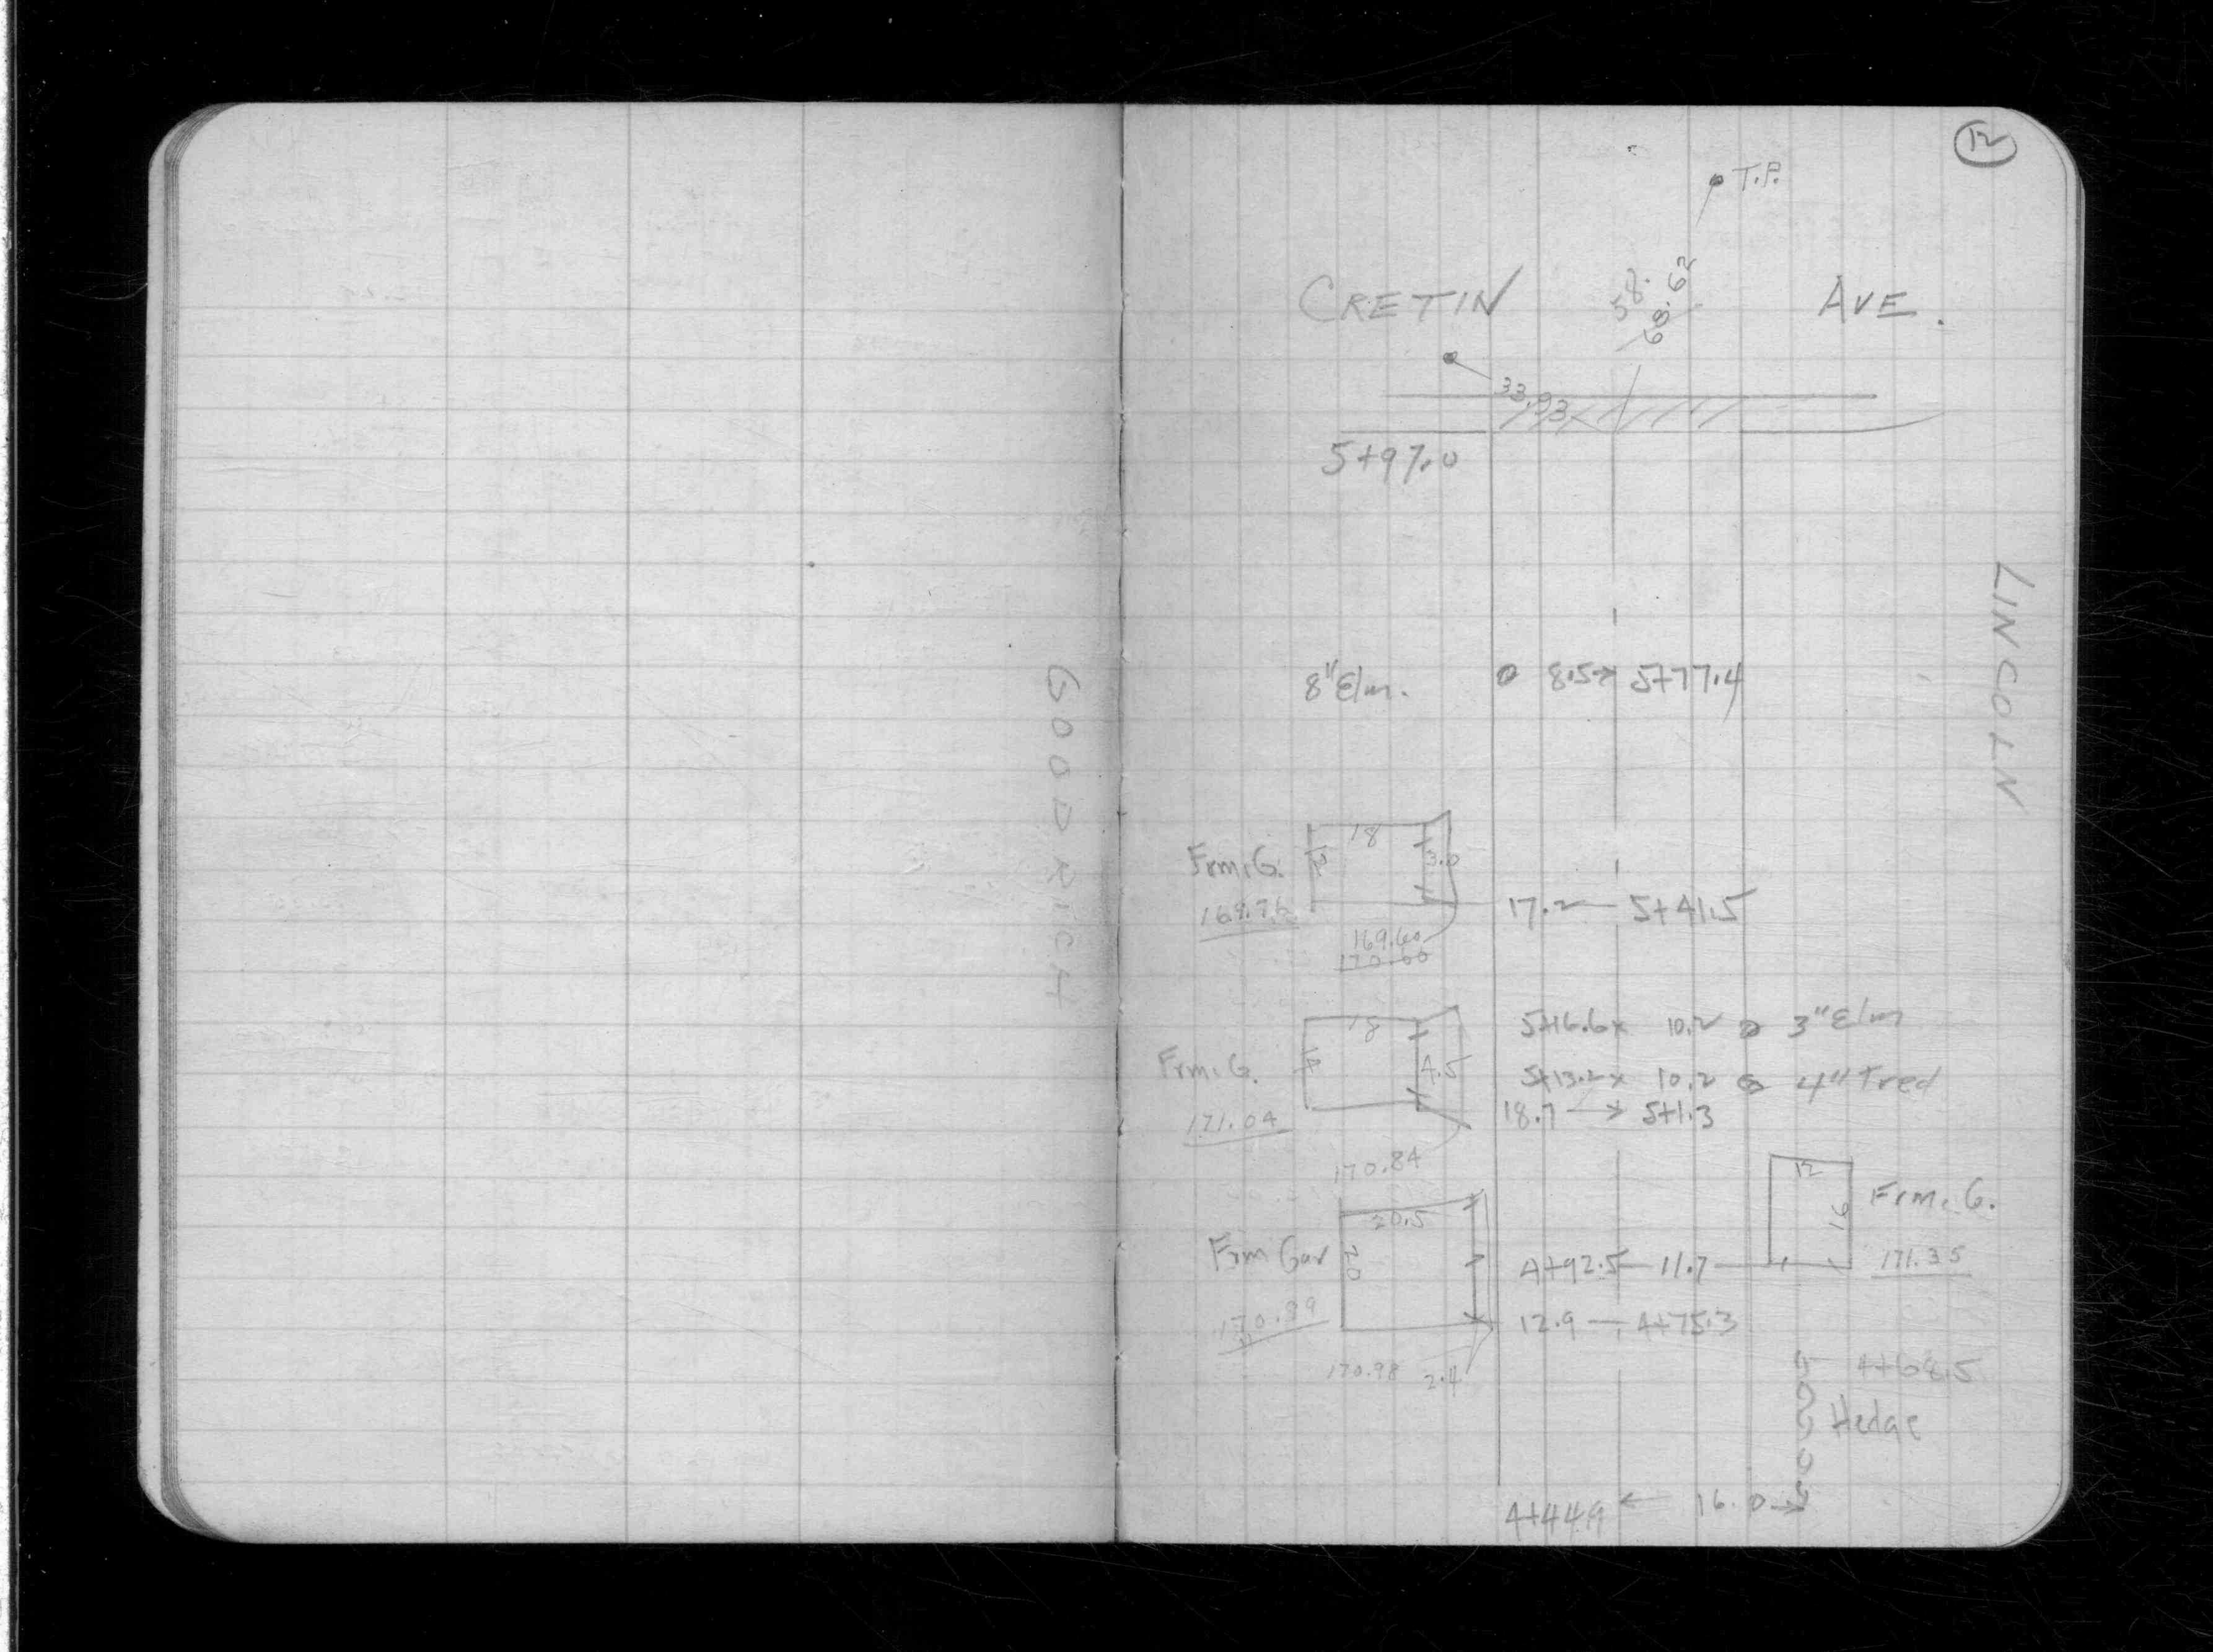 12
T.P.
CRETIN AVE.
58.62
68.
33.93
5+97.0
LINCOLN
GOODRICH
8" Elm. 8.5 5+77.4
18
Frm. G. 3.0
169.76 17.2 5+41.5
169.60
170.00
18 5+16.6 10.2 3" Elm
Frm. G. 4.5 5+13.2 10.2 4" Tred
171.04 18.7 → 5+1.3
170.84
12
20.5 16 Frm. G.
Frm Gar 20 4+92.5 11.7 171.35
170.89 12.9 4+75.3
170.98 2.4 4+68.5
Hedge
4+44.9 ← 16.0 →